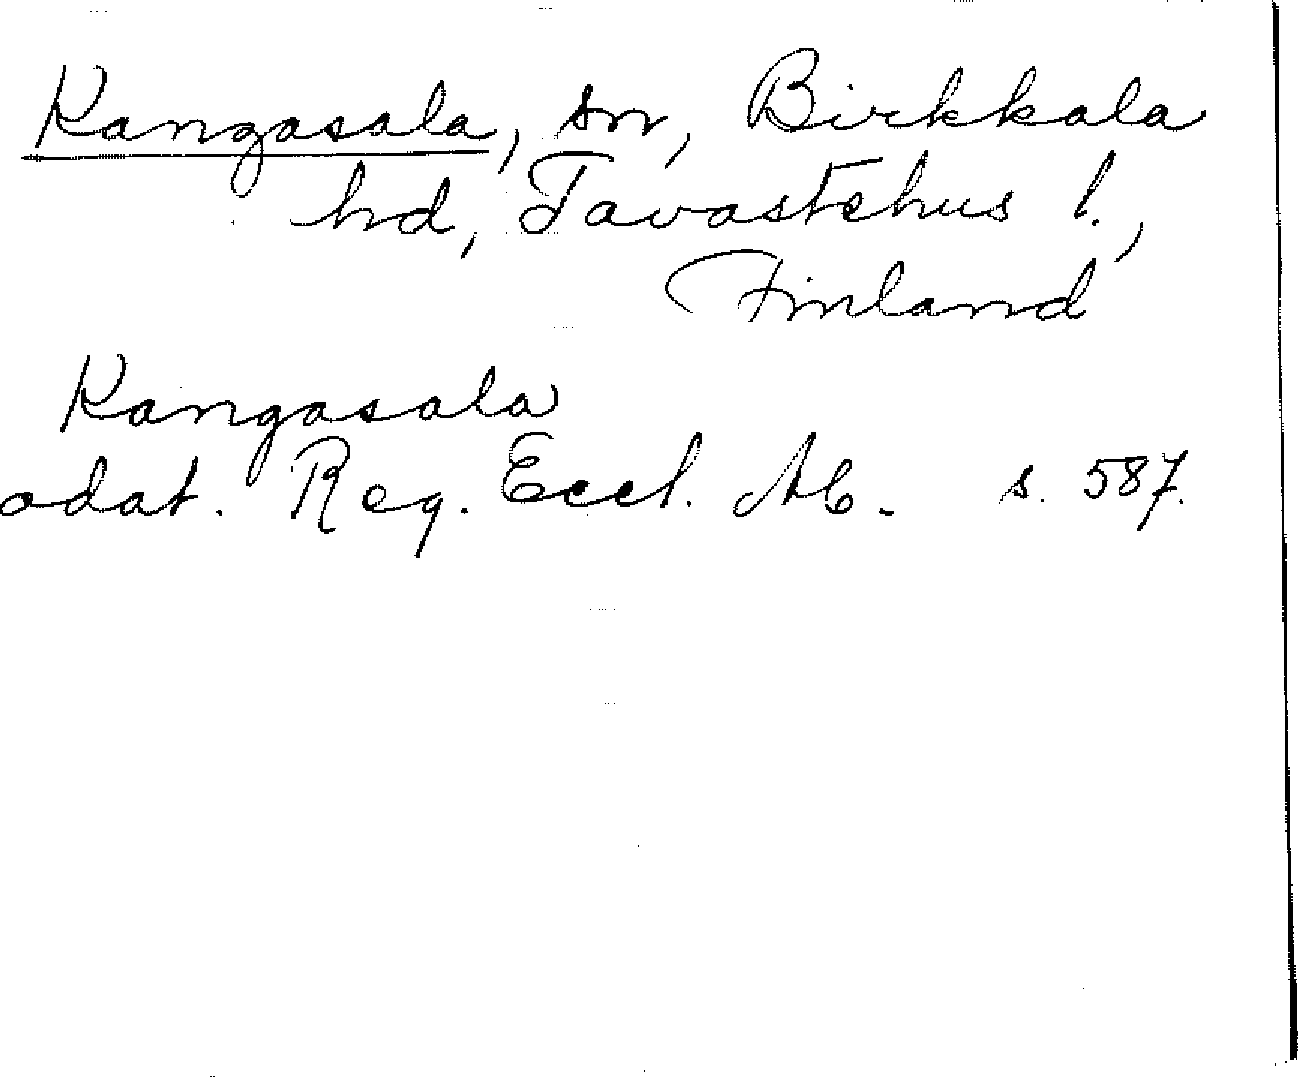 Kangasala, sn, Birkkala
hd, Tavastehus l.,
Finland
Kangasala
odat. Reg. Eccl. Ab. s. 587.